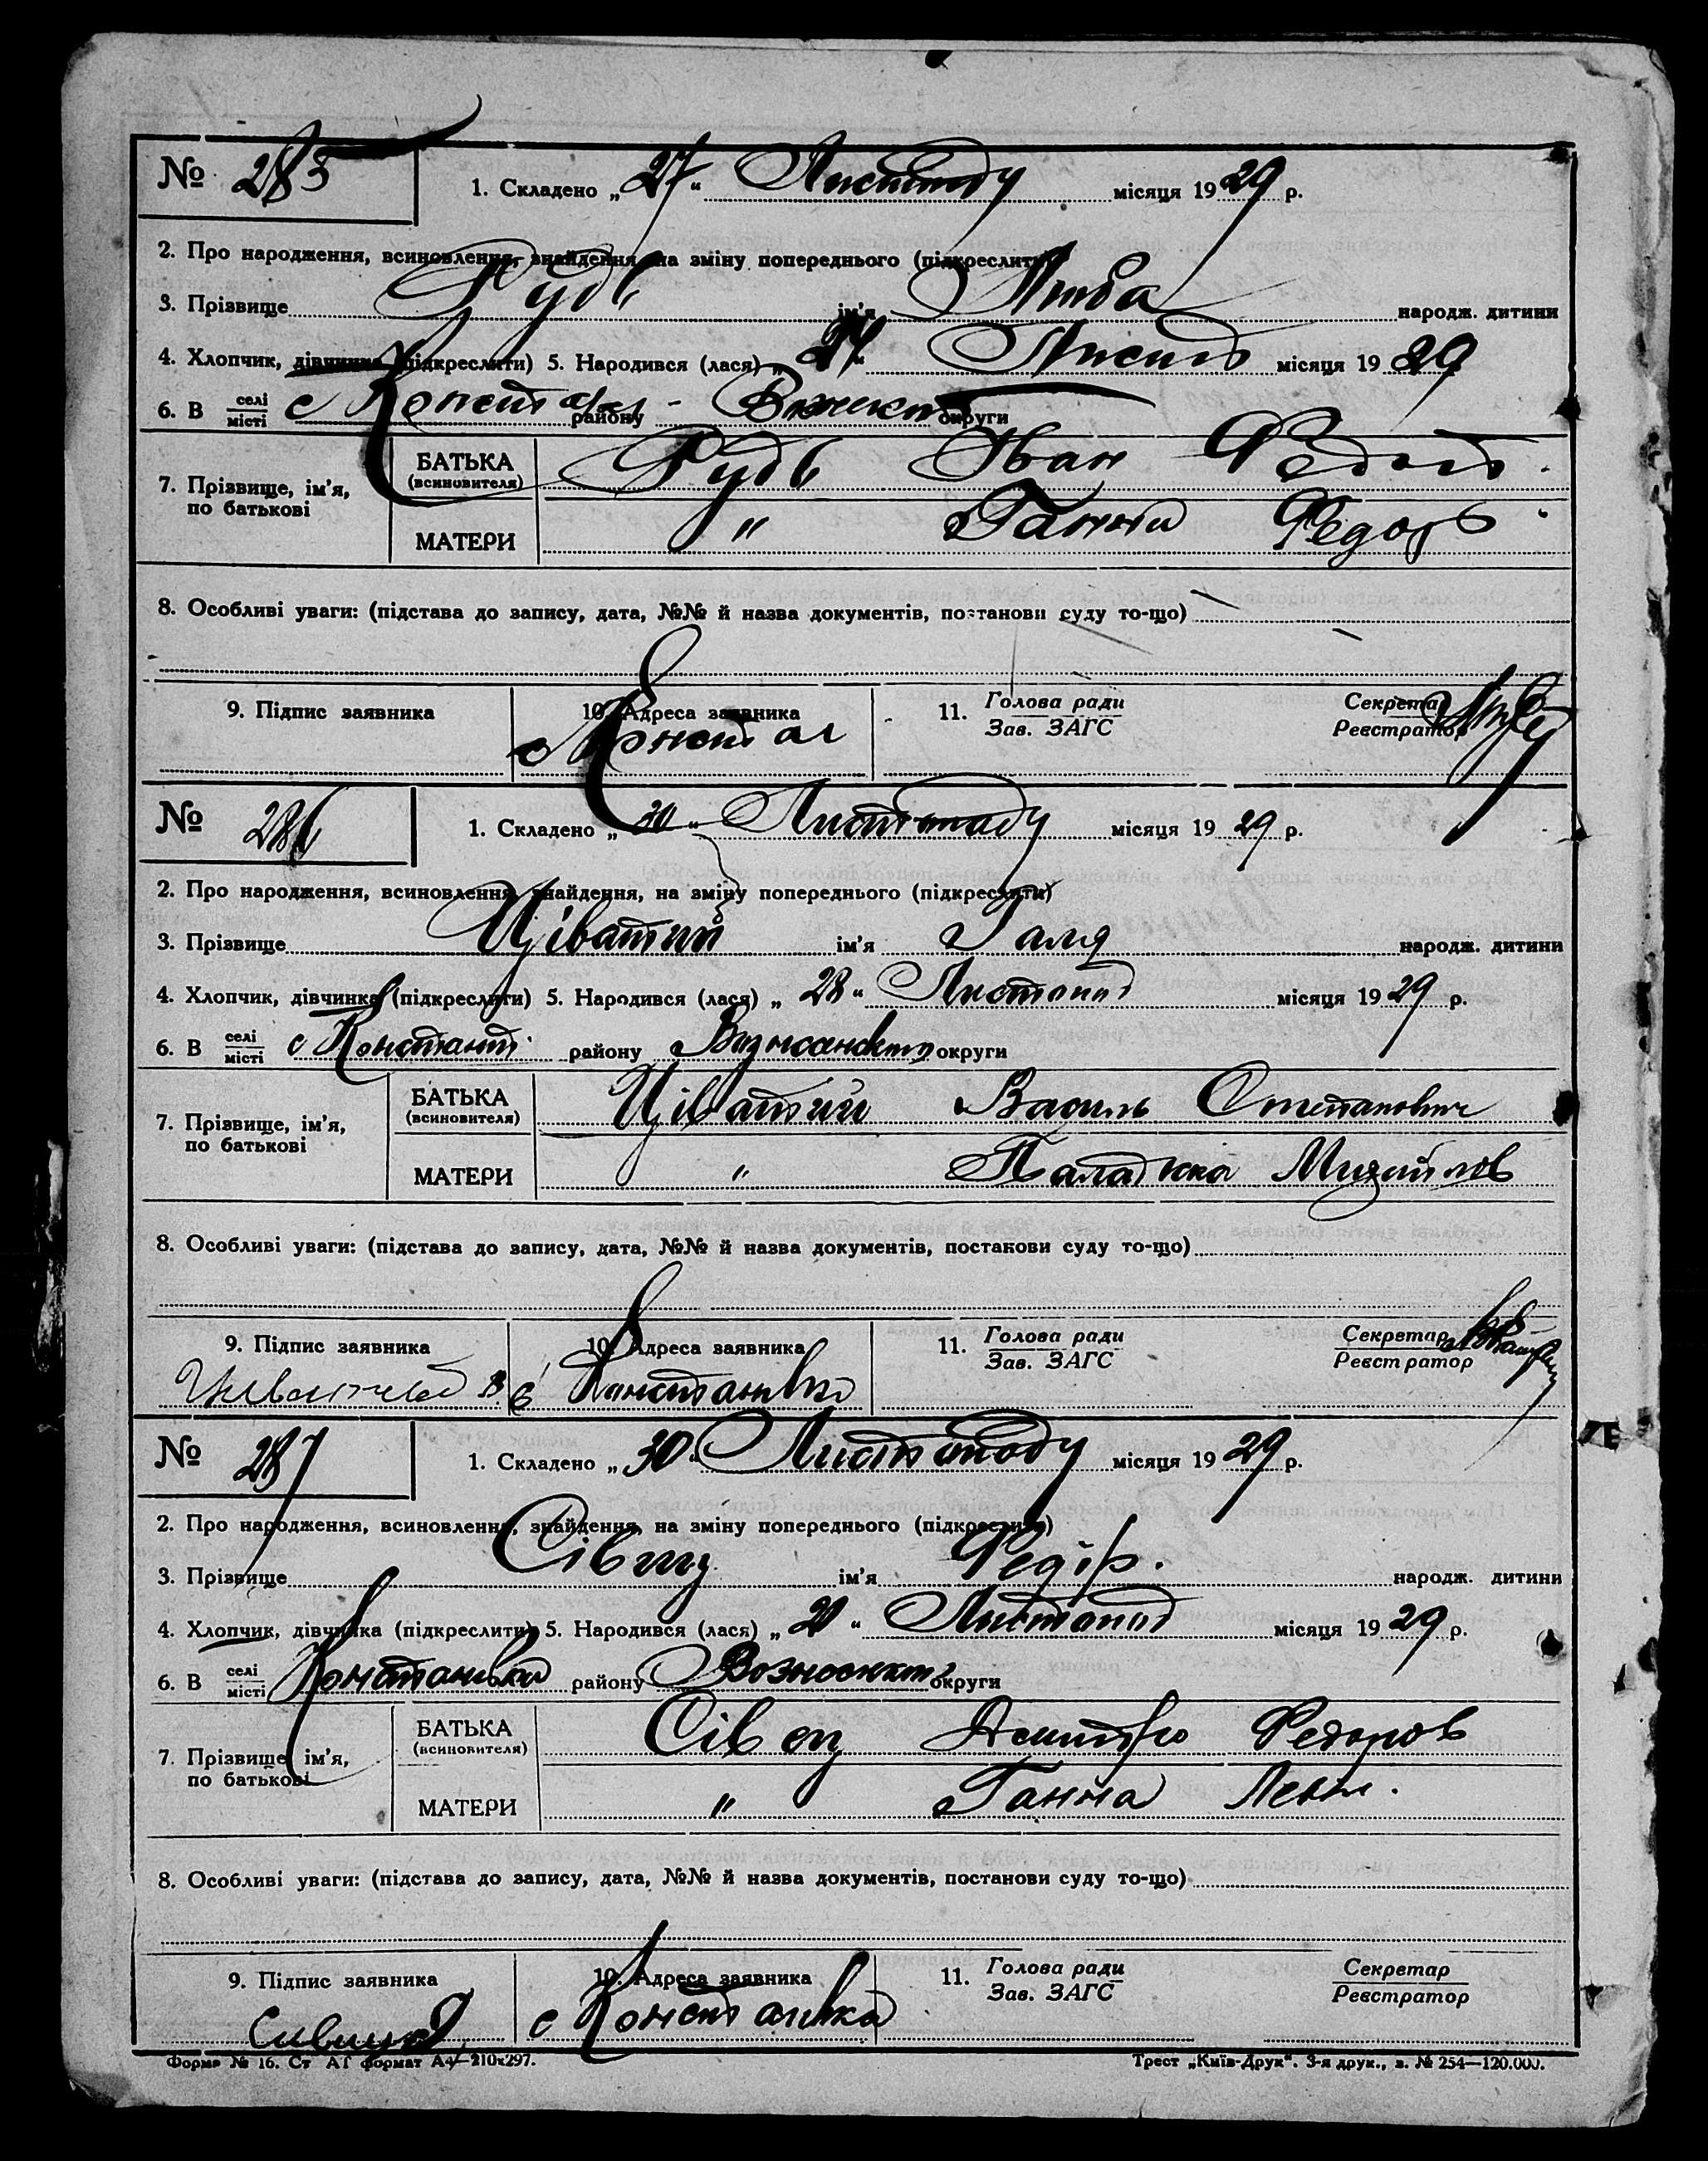 № 285 1. Складено „27“ Листопаду місяця 1929 р.
2. Про народження, всиновлення, знайдення, на зміну попереднього (підкреслити)
3. Прізвище Рудь ім'я Люба народж. дитини
4. Хлопчик, дівчинка (підкреслити) 5. Народився (лася) „ “ місяця 1929
6. В селі/місті с району округи
7. Прізвище, ім'я, по батькові
БАТЬКА (всиновителя) Рудь Іван
МАТЕРИ " Ганна Федор
8. Особливі уваги: (підстава до запису, дата, №№ й назва документів, постанови суду то-що)
9. Підпис заявника 10. Адреса заявника 11. Голова ради Секретар
Зав. ЗАГС Реєстратор
с
№ 286 1. Складено „30“ Листопаду місяця 1929 р.
2. Про народження, всиновлення, знайдення, на зміну попереднього (підкреслити)
3. Прізвище Ціватий ім'я Галя народж. дитини
4. Хлопчик, дівчинка (підкреслити) 5. Народився (лася) „28“ Листопад місяця 1929 р.
6. В селі/місті с Констант. району округи
7. Прізвище, ім'я, по батькові
БАТЬКА (всиновителя) Ціватий Василь Степанович
МАТЕРИ " Палажка Михайлов
8. Особливі уваги: (підстава до запису, дата, №№ й назва документів, постанови суду то-що)
9. Підпис заявника 10. Адреса заявника 11. Голова ради Секретар
Зав. ЗАГС Реєстратор
№ 287 1. Складено „30“ Листопаду місяця 1929 р.
2. Про народження, всиновлення, знайдення, на зміну попереднього (підкреслити)
3. Прізвище ім'я Федір. народж. дитини
4. Хлопчик, дівчинка (підкреслити) 5. Народився (лася) „20“ Листопад місяця 1929 р.
6. В селі/місті Констанівка району округи
7. Прізвище, ім'я, по батькові
БАТЬКА (всиновителя) Сівец Дмитро Федоров
МАТЕРИ " Ганна
8. Особливі уваги: (підстава до запису, дата, №№ й назва документів, постанови суду то-що)
9. Підпис заявника 10. Адреса заявника 11. Голова ради Секретар
Зав. ЗАГС Реєстратор
с Констанівка
Форма № 16. Ст АГ формат А4—210х297. Трест „Київ-Друк“. 3-я друк., з. № 254—120.000.